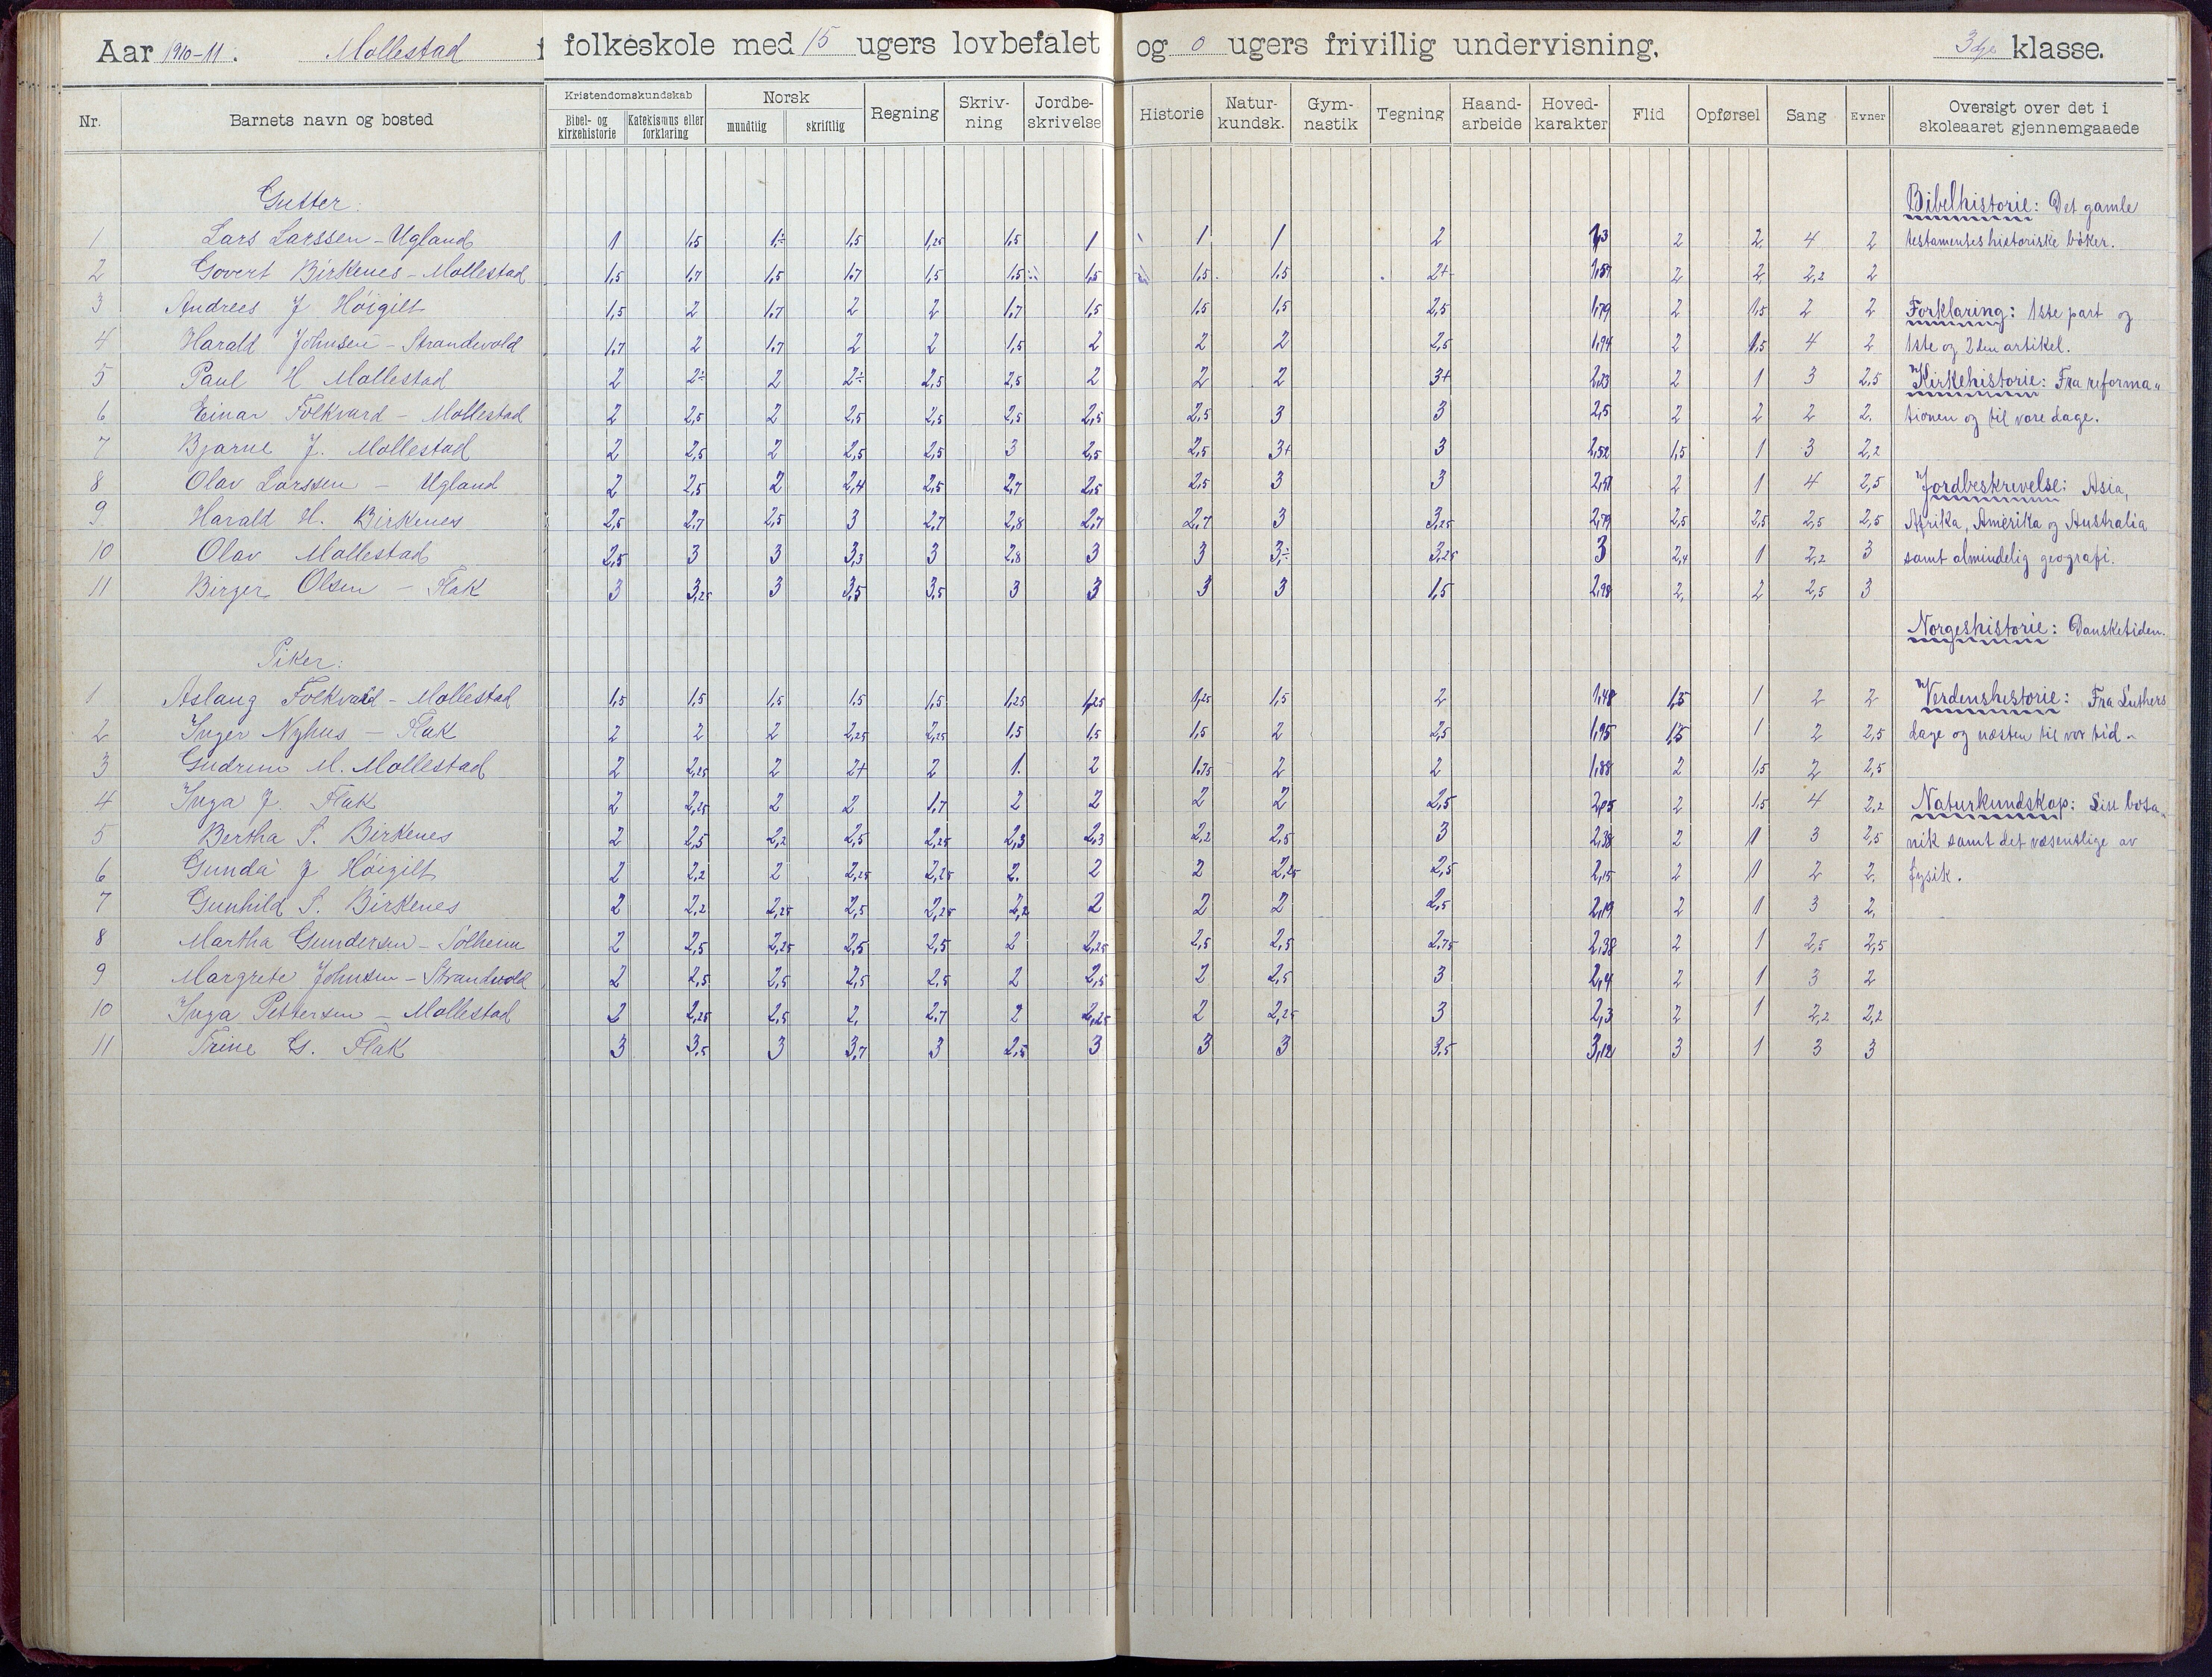 Aar 1910-11. Mollestad folkeskole med 15 ugers lovbefalet og 0 ugers frivillig undervisning. 3dje klasse.
Nr. Barnets navn og bosted Kristendomskundskab Bibel- og kirkehistorie Katekismus eller forklaring Norsk mundtlig skriftlig Regning Skriv-ning Jordbe-skrivelse Historie Natur-kundsk. Gym-nastik Tegning Haand-arbeide Hoved-karakter Flid Opførsel Sang Evner Oversigt over det i skoleaaret gjennemgaaede
Gutter:
1 Lars Larssen - Ugland 1 1,5 1÷ 1,5 1,25 1,5 1 1 1 2 1,3 2 2 4 2
2 Govert Birkenes - Mollestad 1,5 1,7 1,5 1,7 1,5 1,5 1,5 1,5 1,5 2+ 1,57 2 2 2,2 2
3 Andrees J Höigilt 1,5 2 1,7 2 2 1,7 1,5 1,5 1,5 2,5 1,79 2 1,5 2 2
4 Harald Johnsen - Strandevold 1,7 2 1,7 2 2 1,5 2 2 2 2,5 1,94 2 1,5 4 2
5 Paul H Mollestad 2 2÷ 2 2÷ 2,5 2,5 2 2 2 3+ 2,23 2 1 3 2,5
6 Einar Folkvard - Mollestad 2 2,5 2 2,5 2,5 2,5 2,5 2,5 3 3 2,5 2 2 2 2.
7 Bjarne J. Mollestad 2 2,5 2 2,5 2,5 3 2,5 2,5 3+ 3 2,52 1,5 1 3 2,2
8 Olav Larssen - Ugland 2 2,5 2 2,4 2,5 2,7 2,5 2,5 3 3 2,51 2 1 4 2,5
9 Harald H. Birkenes 2,5 2,7 2,5 3 2,7 2,8 2,7 2,7 3 3,25 2,79 2,5 2,5 2,5 2,5
10 Olav Mollestad 2,5 3 3 3,3 3 2,8 3 3 3÷ 3,25 3 2,4 1 2,2 3
11 Birger Olsen - Flak 3 3,25 3 3,5 3,5 3 3 3 3 1,5 2,98 2, 2 2,5 3
Piker:
1 Aslaug Folkvard - Mollestad 1,5 1,5 1,5 1,5 1,5 1,25 1,25 1,25 1,5 2 1,48 1,5 1 2 2
2 Inger Nyhus - Flak 2 2 2 2,25 2,25 1,5 1,5 1,5 2 2,5 1,95 1,5 1 2 2,5
3 Gudrun M. Mollestad 2 2,25 2 2+ 2 1. 2 1,75 2 2 1,88 2 1,5 2 2,5
4 Inga J. Flak 2 2,25 2 2 1,7 2 2 2 2 2,5 2,05 2 1,5 4 2,2
5 Bertha S. Birkenes 2 2,5 2,2 2,5 2,25 2,3 2,3 2,2 2,5 3 2,38 2 1 3 2,5
6 Gunda J Höigilt 2 2,2 2 2,25 2,25 2. 2 2 2,25 2,5 2,15 2 1 2 2.
7 Gunhild S. Birkenes 2 2,2 2,25 2,5 2,25 2,2 2 2 2 2,5 2,19 2 1 3 2,
8 Martha Gundersen - Solheim 2 2,5 2,25 2,5 2,5 2 2,25 2,5 2,5 2,75 2,38 2 1 2,5 2,5
9 Margrete Johnsen - Strandvold 2 2,5 2,5 2,5 2,5 2 2,5 2 2,5 3 2,4 2 1 3 2
10 Inga Pettersen - Mollestad 2 2,25 2,5 2, 2,7 2 2,25 2 2,25 3 2,3 2 1 2,2 2,2
11 Trine G. Flak 3 3,5 3 3,7 3 2,5 3 3 3 3,5 3,12 3 1 3 3
Bibelhistorie: Det gamle
testamentes historiske böker.
Forklaring: 1ste part og
1ste og 2den artikel.
Kirkehistorie: Fra reforma„
tionen og til vore dage.
Jordbeskrivelse: Asia,
Afrika, Amerika og Australia
samt almindelig geografi.
Norgeshistorie: Dansketiden.
Verdenshistorie: Fra Luthers
dage og næsten til vor tid.
Naturkundskap: bota„
nik samt det væsentlige av
fysik.